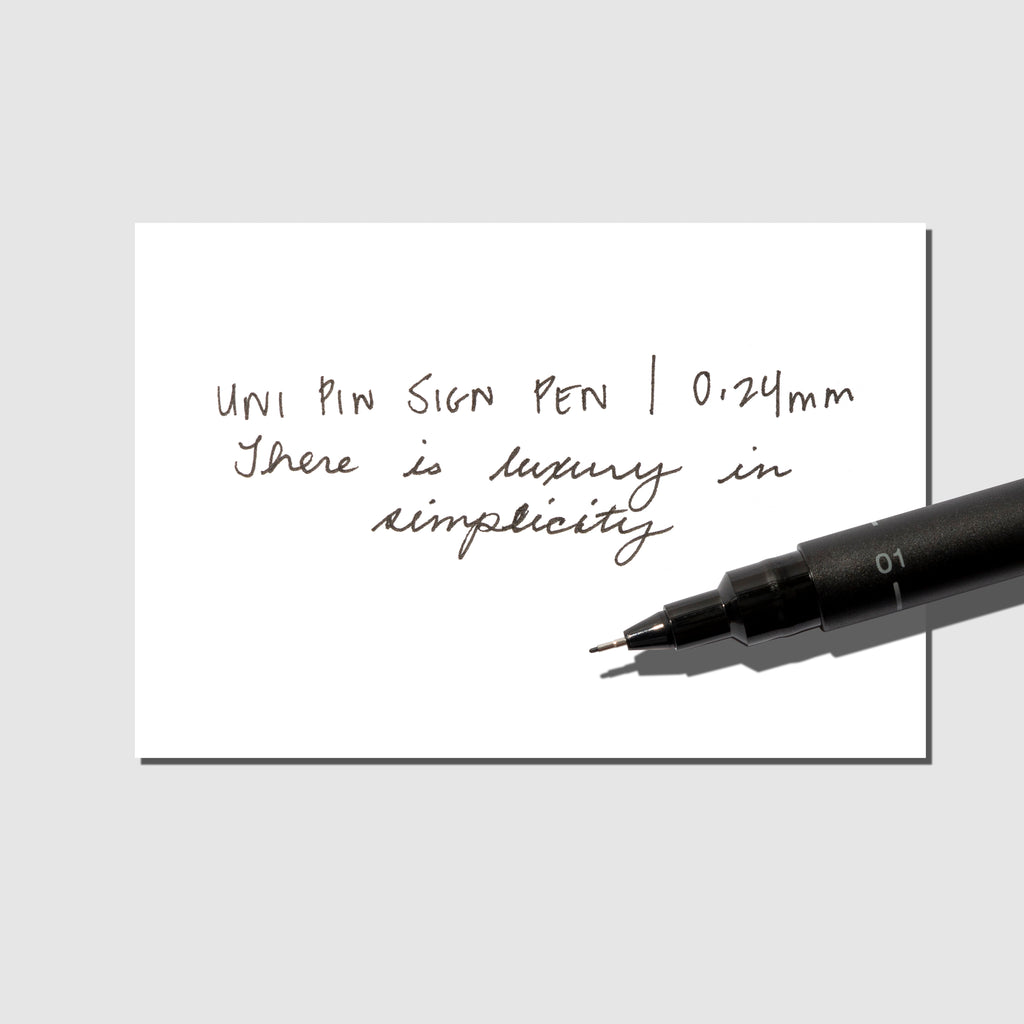 UNI PIN SIGN PEN | 0.24mm
There is luxury in
simplicity
01